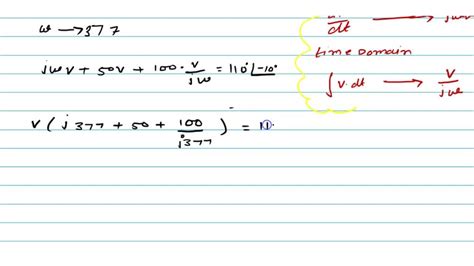 ω → 377
jωv + 50v + 100 · v/jω = 110 ∠-10°
v ( j377 + 50 + 100/j377 ) = 11
dt → jω
time Domain
∫ v·dt → v/jω